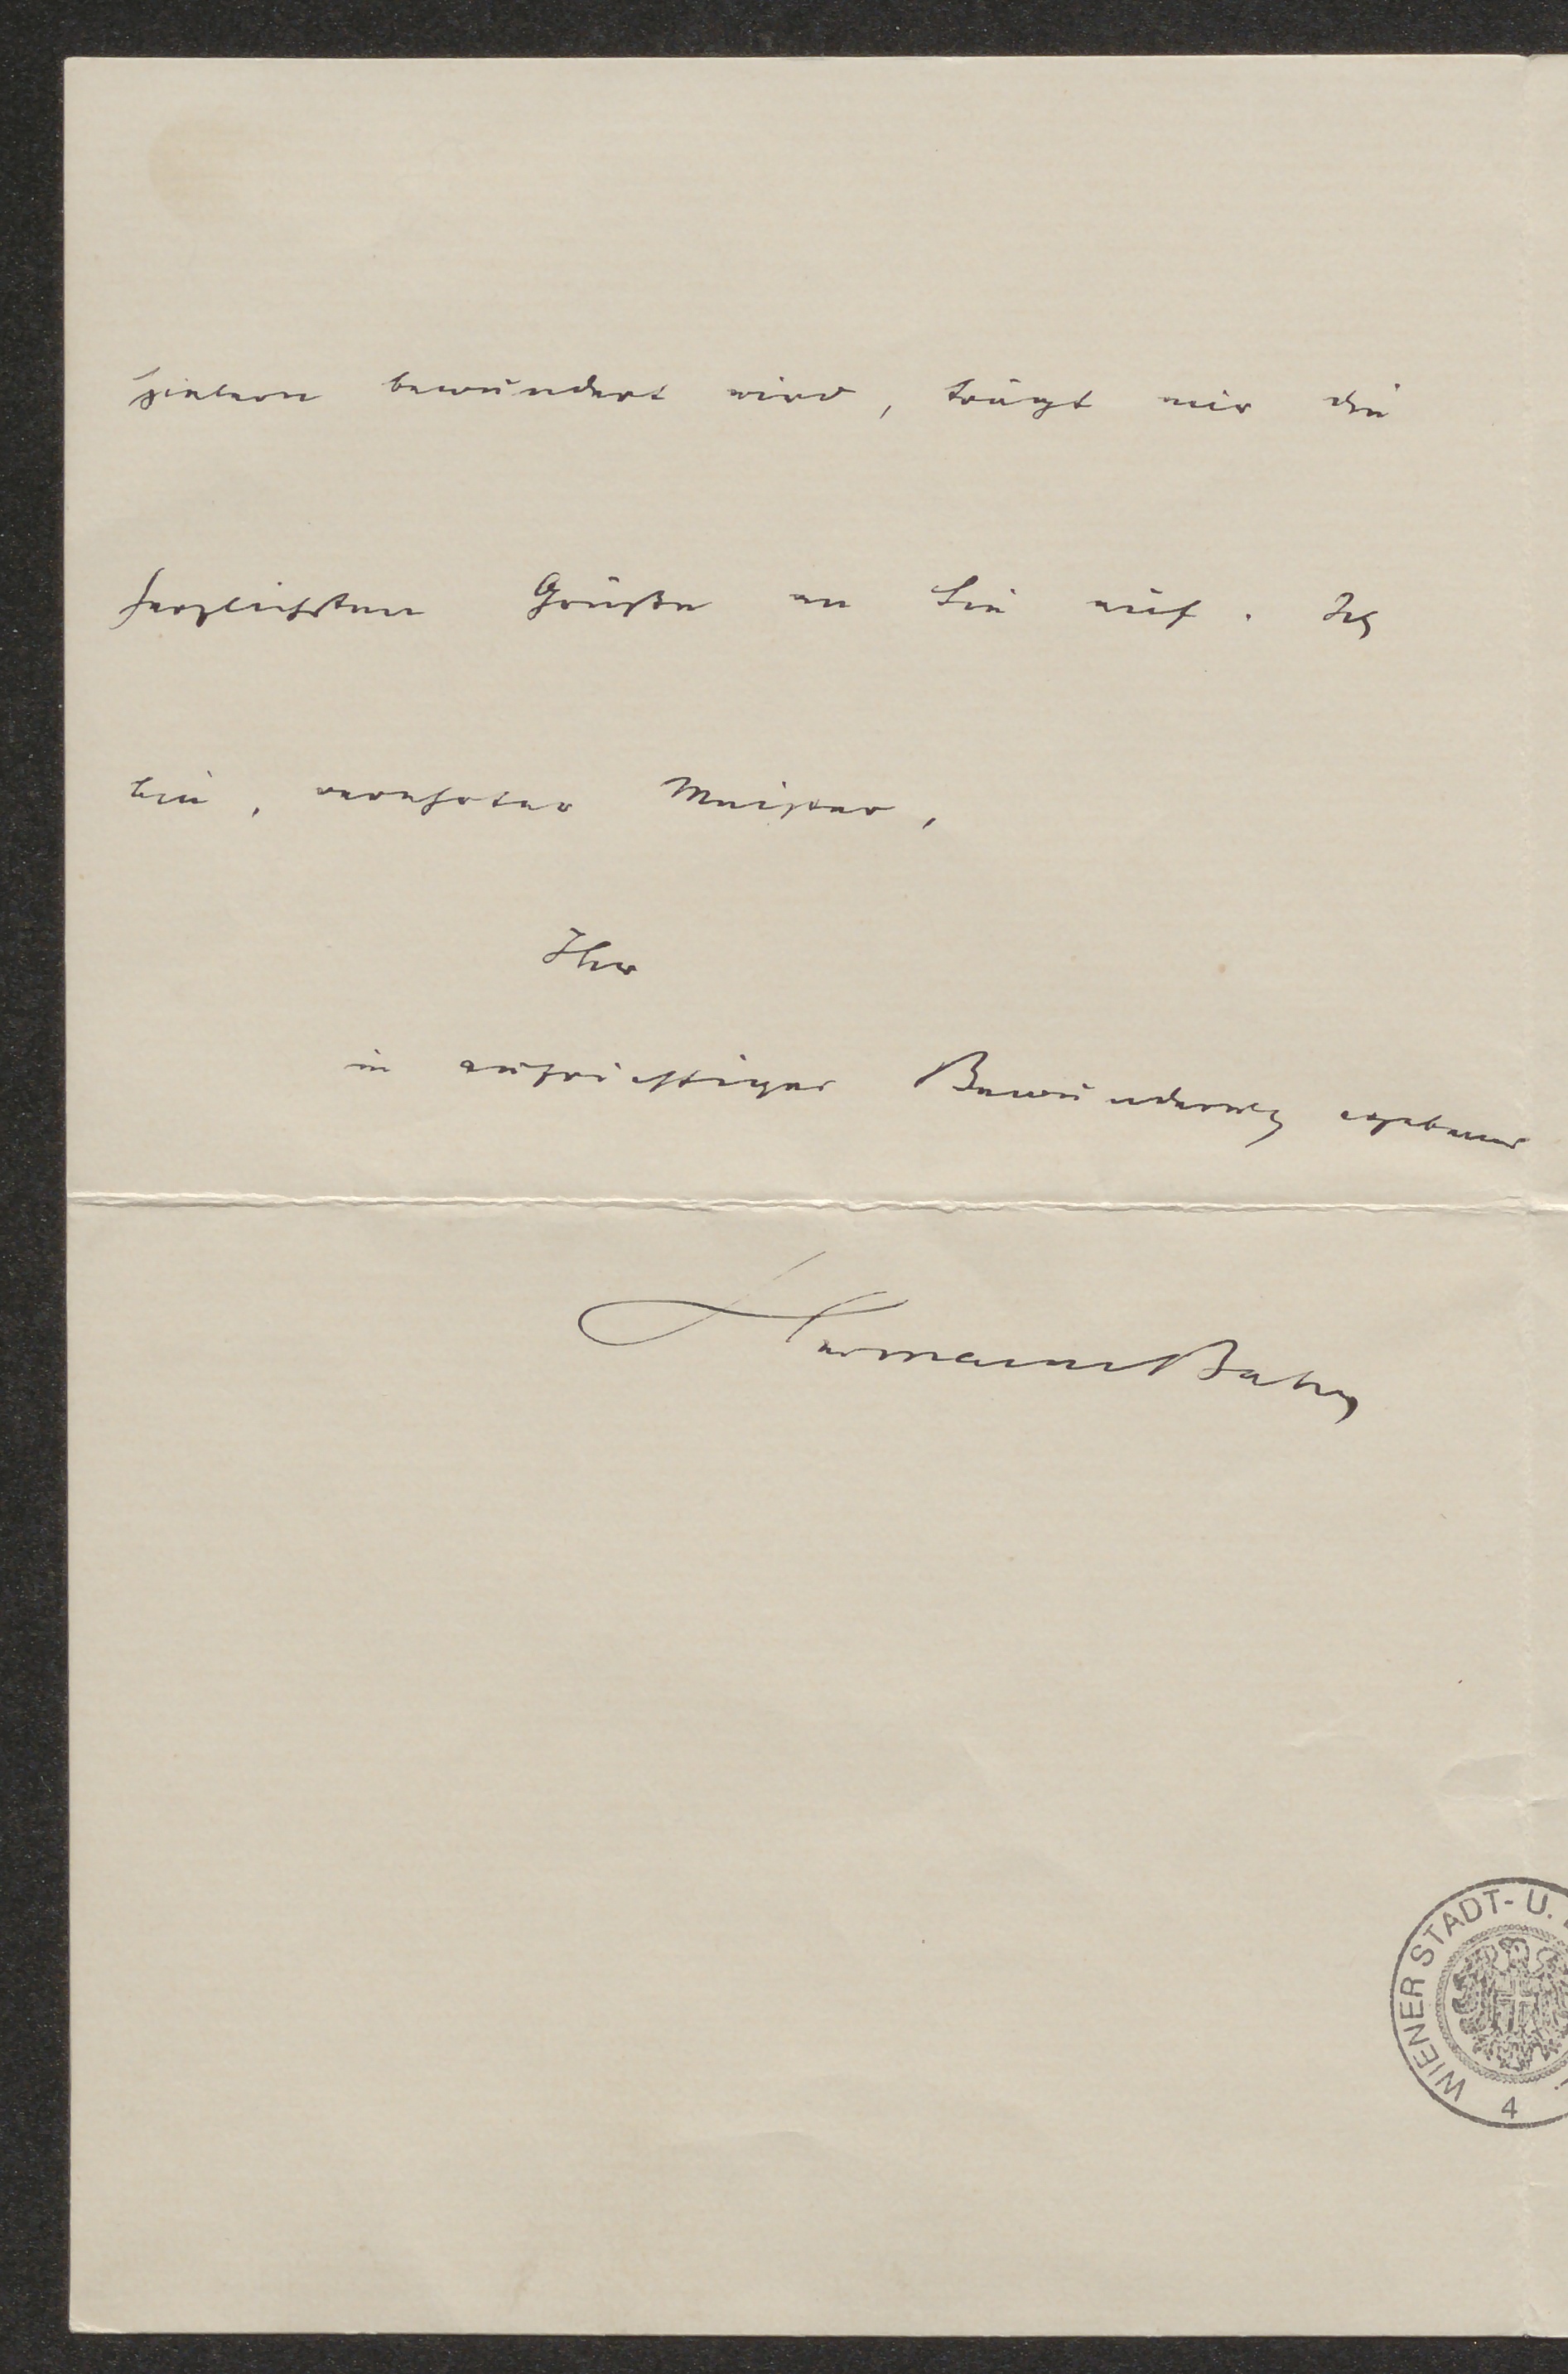 bewundert wird, trägt mir die
herzlichsten Grüße an Sie auf. Ich
bin, verehrter Meister,
Ihr
in aufrichtiger Bewunderung ergebener
Hermann Bahr
WIENER STADT- U.
4